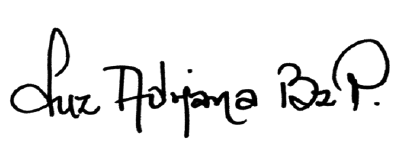 Luz Adriana Bz P.